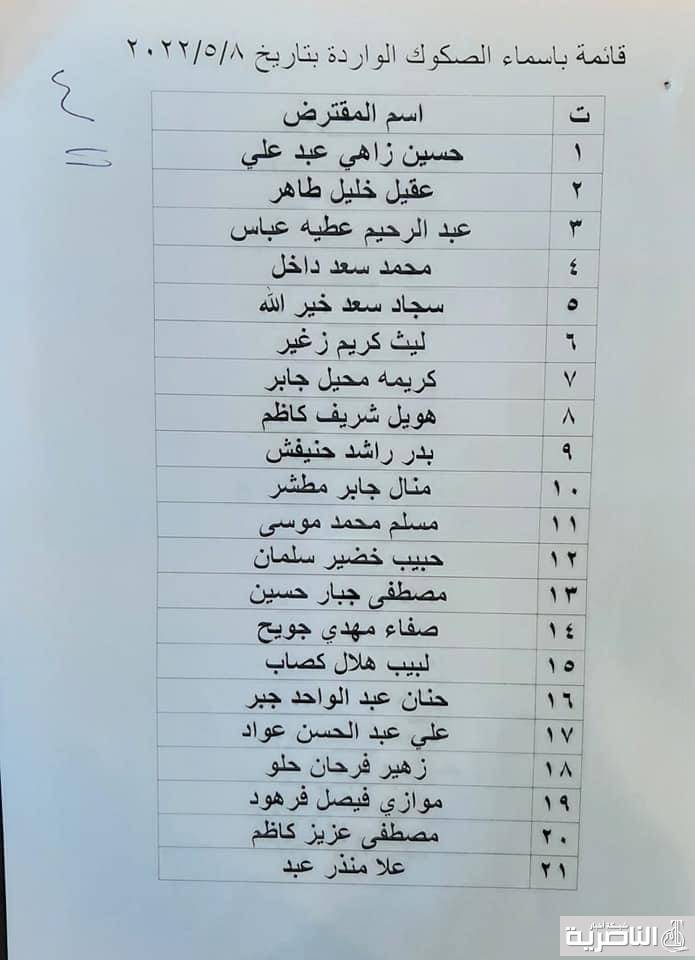 قائمة باسماء الصكوك الواردة بتاريخ ٢٠٢٢/٥/٨
٤
ت اسم المقترض
١ حسين زاهي عبد علي
٢ عقيل خليل طاهر
٣ عبد الرحيم عطيه عباس
٤ محمد سعد داخل
٥ سجاد سعد خير الله
٦ ليث كريم زغير
٧ كريمه محيل جابر
٨ هويل شريف كاظم
٩ بدر راشد حنيفش
١٠ منال جابر مطشر
١١ مسلم محمد موسى
١٢ حبيب خضير سلمان
١٣ مصطفى جبار حسين
١٤ صفاء مهدي جويح
١٥ لبيب هلال كصاب
١٦ حنان عبد الواحد جبر
١٧ علي عبد الحسن عواد
١٨ زهير فرحان حلو
١٩ موازي فيصل فرهود
٢٠ مصطفى عزيز كاظم
٢١ علا منذر عبد
شبكة اخبار
الناصرية